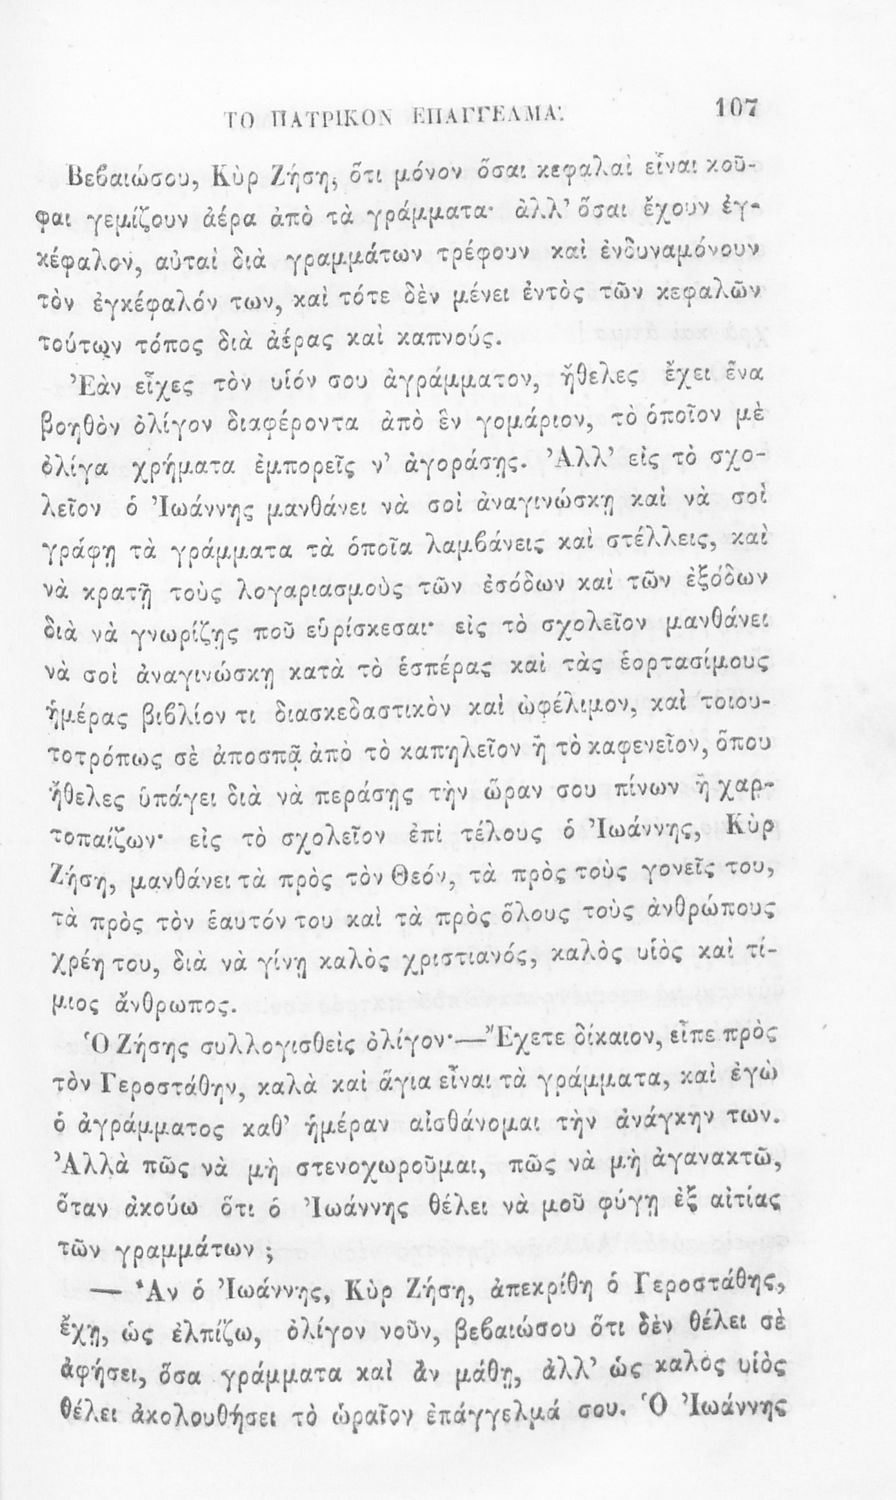 ΤΟ ΠΑΤΡΙΚΟΝ ΕΠΑΓΓΕΛΜΑ. 107
Βεβαιώσου, Κὺρ Ζήση, ὅτι μόνον ὅσαι κεφαλαὶ εἶναι κοῦ-
φαι γεμίζουν ἀέρα ἀπὸ τὰ γράμματα· ἀλλ’ ὅσαι ἔχουν ἐγ-
κέφαλον, αὐταὶ διὰ γραμμάτων τρέφουν καὶ ἐνδυναμόνουν
τὸν ἐγκέφαλόν των, καὶ τότε δὲν μένει ἐντὸς τῶν κεφαλῶν
τούτων τόπος διὰ ἀέρας καὶ καπνούς.
Ἐὰν εἶχες τὸν υἱόν σου ἀγράμματον, ἤθελες ἔχει ἕνα
βοηθὸν ὀλίγον διαφέροντα ἀπὸ ἓν γομάριον, τὸ ὁποῖον μὲ
ὀλίγα χρήματα ἐμπορεῖς ν’ ἀγοράσῃς. Ἀλλ’ εἰς τὸ σχο-
λεῖον ὁ Ἰωάννης μανθάνει νὰ σοὶ ἀναγινώσκῃ καὶ νὰ σοὶ
γράφῃ τὰ γράμματα τὰ ὁποῖα λαμβάνεις καὶ στέλλεις, καὶ
νὰ κρατῇ τοὺς λογαριασμοὺς τῶν ἐσόδων καὶ τῶν ἐξόδων
διὰ νὰ γνωρίζῃς ποῦ εὑρίσκεσαι· εἰς τὸ σχολεῖον μανθάνει
νὰ σοὶ ἀναγινώσκῃ κατὰ τὸ ἑσπέρας καὶ τὰς ἑορτασίμους
ἡμέρας βιβλίον τι διασκεδαστικὸν καὶ ὠφέλιμον, καὶ τοιου-
τοτρόπως σὲ ἀποσπᾷ ἀπὸ τὸ καπηλεῖον ἢ τὸ καφενεῖον, ὅπου
ἤθελες ὑπάγει διὰ νὰ περάσῃς τὴν ὥραν σου πίνων ἢ χαρ-
τοπαίζων· εἰς τὸ σχολεῖον ἐπὶ τέλους ὁ Ἰωάννης, Κὺρ
Ζήση, μανθάνει τὰ πρὸς τὸν Θεόν, τὰ πρὸς τοὺς γονεῖς του,
τὰ πρὸς τὸν ἑαυτόν του καὶ τὰ πρὸς ὅλους τοὺς ἀνθρώπους
χρέη του, διὰ νὰ γίνῃ καλὸς χριστιανός, καλὸς υἱὸς καὶ τί-
μιος ἄνθρωπος.
Ὁ Ζήσης συλλογισθεὶς ὀλίγον·—Ἔχετε δίκαιον, εἶπε πρὸς
τὸν Γεροστάθην, καλὰ καὶ ἅγια εἶναι τὰ γράμματα, καὶ ἐγὼ
ὁ ἀγράμματος καθ’ ἡμέραν αἰσθάνομαι τὴν ἀνάγκην των.
Ἀλλὰ πῶς νὰ μὴ στενοχωροῦμαι, πῶς νὰ μὴ ἀγανακτῶ,
ὅταν ἀκούω ὅτι ὁ Ἰωάννης θέλει νὰ μοῦ φύγῃ ἐξ αἰτίας
τῶν γραμμάτων ;
— Ἂν ὁ Ἰωάννης, Κὺρ Ζήση, ἀπεκρίθη ὁ Γεροστάθης,
ἔχῃ, ὡς ἐλπίζω, ὀλίγον νοῦν, βεβαιώσου ὅτι δὲν θέλει σὲ
ἀφήσει, ὅσα γράμματα καὶ ἂν μάθῃ, ἀλλ’ ὡς καλὸς υἱὸς
θέλει ἀκολουθήσει τὸ ὡραῖον ἐπάγγελμά σου. Ὁ Ἰωάννης